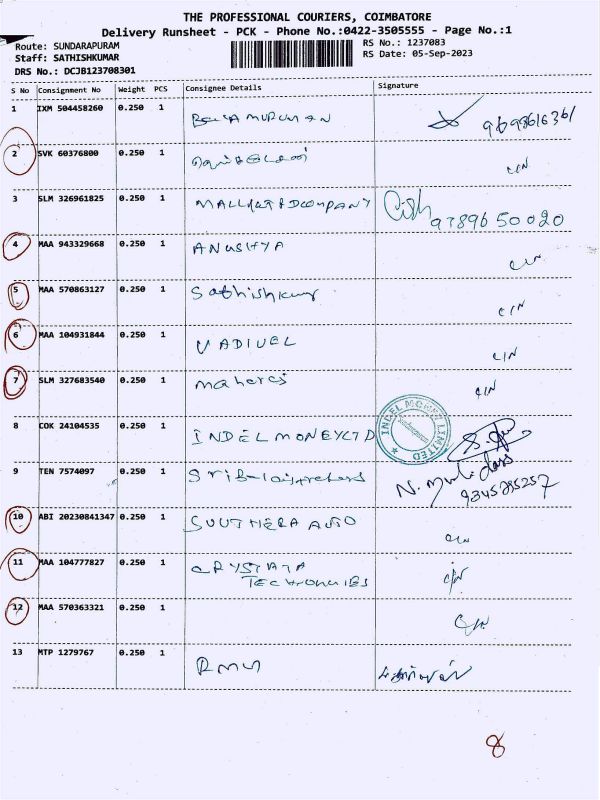 THE PROFESSIONAL COURIERS, COIMBATORE
Delivery Runsheet - PCK - Phone No.:0422-3505555 - Page No.:1
Route: SUNDARAPURAM RS No.: 1237083
Staff: SATHISHKUMAR RS Date: 05-Sep-2023
DRS No.: DCJB123708301
S No Consignment No Weight PCS Consignee Details Signature
1 IXM 504458260 0.250 1
2 SVK 60376800 0.250 1 C/N
3 SLM 326961825 0.250 1 9789650020
4 MAA 943329668 0.250 1 ANUSHYA C/N
5 MAA 570863127 0.250 1 Sathishkumar C/N
6 MAA 104931844 0.250 1 VADIVEL C/N
7 SLM 327683540 0.250 1 C/N
8 COK 24104535 0.250 1 INDEL MONEY LTD INDEL MONEY LIMITED
9 TEN 7574097 0.250 1
10 ABI 20230841347 0.250 1 AUTO C/N
11 MAA 104777827 0.250 1 C/N
12 MAA 570363321 0.250 1 C/N
13 MTP 1279767 0.250 1
8